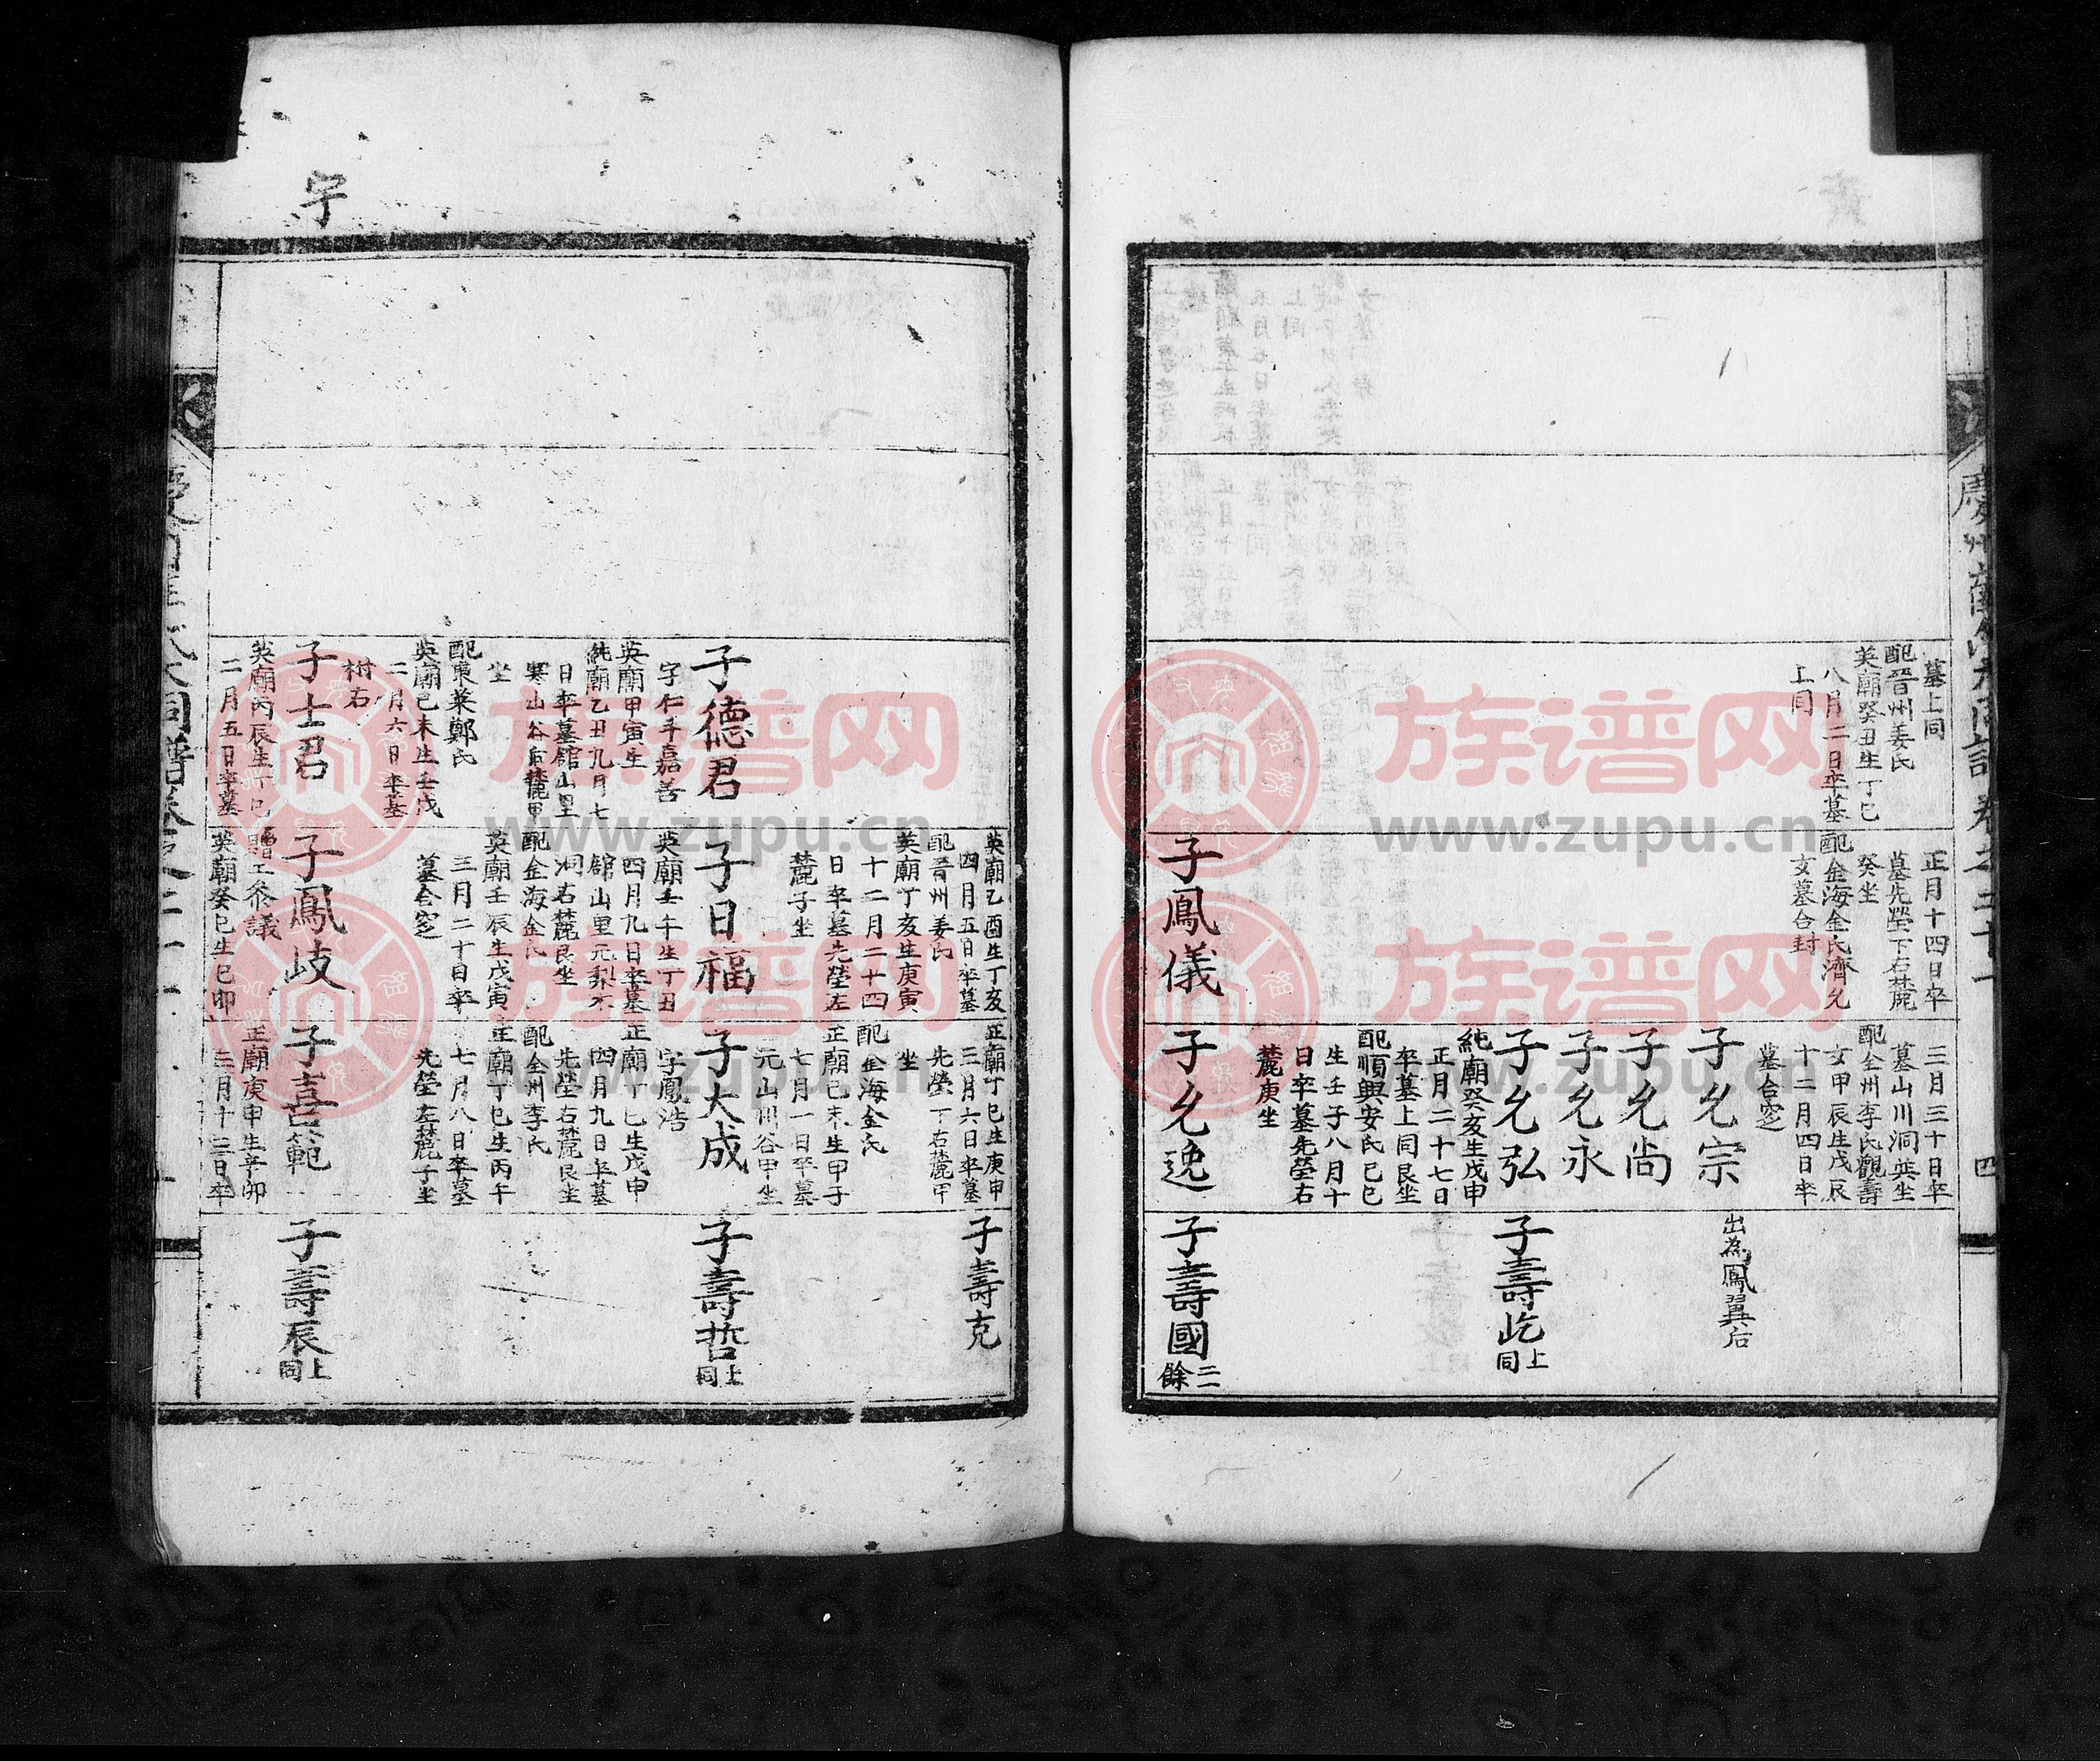 墓上同
配晉州姜氏
英廟癸丑生丁巳
八月二日卒墓
上同
正月十四日卒
墓先塋下右麓
癸坐
配金海金氏濟允
女墓合封
子鳳儀
三月三十日卒
墓山川洞巽坐
配全州李氏觀壽
女甲辰生戊辰
十二月四日卒
墓合窆
子允宗
子允尚
子允永
子允弘
純廟癸亥生戊申
正月二十七日
卒墓上同艮坐
配順興安氏己巳
生壬子八月十
日卒墓先塋右
麓庚坐
子允逸
出為鳳翼后
子壽屹
上同
子壽國
二餘
四
字
子德君
字仁斗嘉善
英廟甲寅生
純廟乙丑九月七
日卒墓館山里
寒山谷右麓甲
坐
配東萊鄭氏
英廟己未生壬戌
二月六日卒墓
祔右
子士君
英廟丙辰生丁巳
二月五日卒墓
英廟乙酉生丁亥
四月五日卒墓
配晉州姜氏
英廟丁亥生庚寅
十二月二十四
日卒墓先塋左
麓子坐
子日福
英廟壬午生丁丑
四月九日卒墓
館山里元梨木
洞右麓艮坐
配金海金氏
英廟壬辰生戊寅
三月二十日卒
墓合窆
子鳳岐
贈工參議
英廟癸巳生己卯
正廟丁巳生庚申
三月六日卒墓
先塋下右麓甲
坐
配金海金氏
正廟己未生甲子
七月一日卒墓
元山川谷甲坐
子大成
字鳳浩
正廟丁巳生戊申
四月九日卒墓
先塋右麓艮坐
配全州李氏
正廟丁巳生丙午
七月八日卒墓
先塋左麓子坐
子喜範
正廟庚申生辛卯
三月十三日卒
子壽克
子壽哲
上同
子壽辰
上同
族谱网
www.zupu.cn
族谱网
www.zupu.cn
族谱网
www.zupu.cn
族谱网
www.zupu.cn